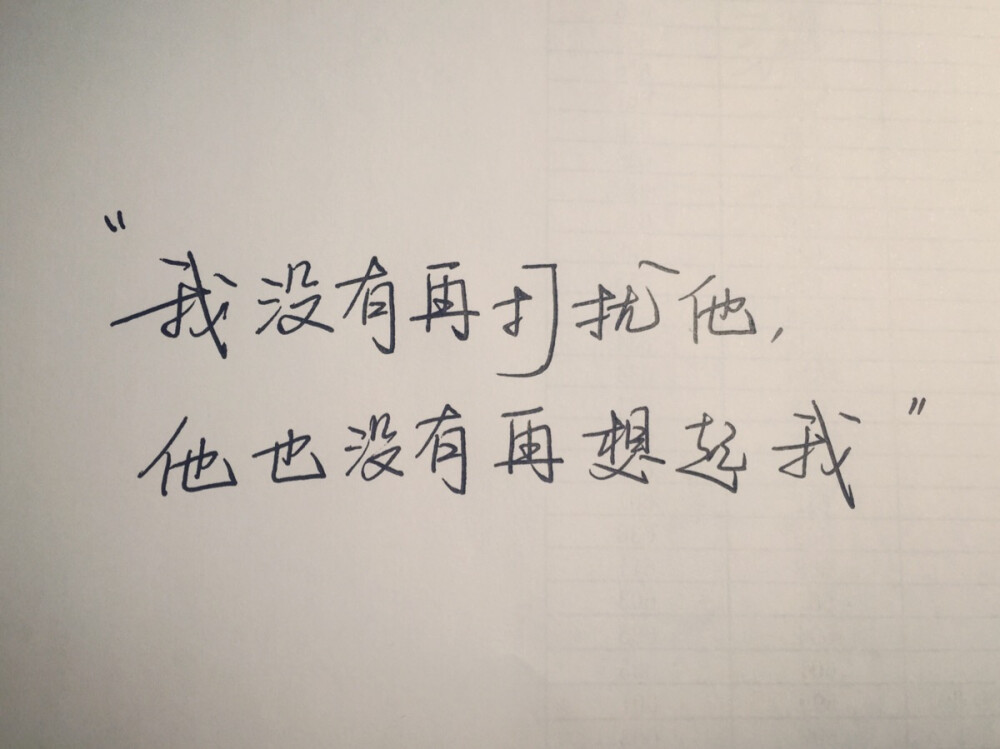 "我没有再打扰他,
他也没有再想起我"